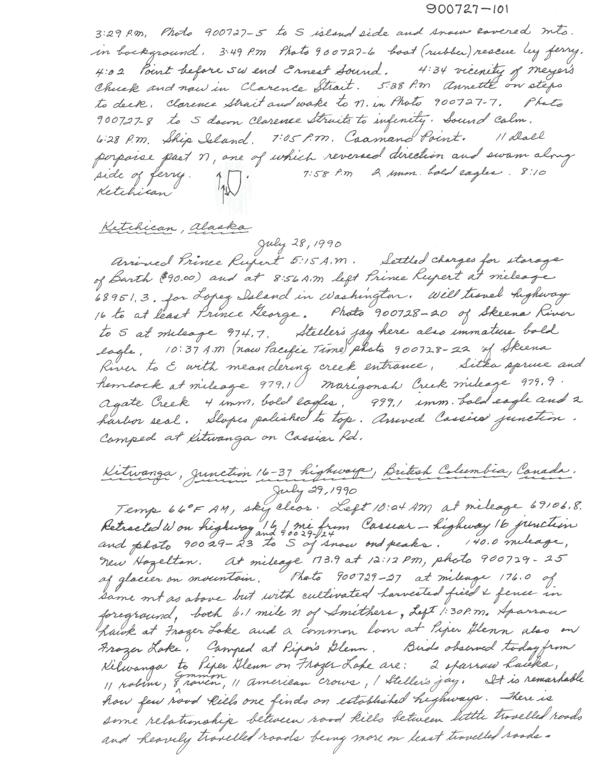 900727-101
3:29 P.M. Photo 900727-5 to S island side and snow covered mts.
in background. 3:49 P.M Photo 900727-6 boat (rubber) rescue by ferry.
4:02 Point before SW end Ernest Sound. 4:34 vicinity of Meyer's
Chuck and now in Clarence Strait. 5:38 P.M Annette on steps
to deck. Clarence Strait and wake to N. in Photo 900727-7. Photo
900727-8 to S down Clarence Straits to infinity. Sound calm.
6:28 P.M. Ship Island. 7:05 P.M. Caamano Point. 11 Dall
porpoise past N, one of which reversed direction and swam along
side of ferry. 7:58 P.M 2 imm. bald eagles. 8:10
Ketchican
Ketchican, Alaska
July 28, 1990
Arrived Prince Rupert 5:15 A.M. Settled charges for storage
of Barth ($90.00) and at 8:56 A.M left Prince Rupert at mileage
68951.3, for Lopez Island in Washington. Will travel highway
16 to at least Prince George. Photo 900728-20 of Skeena River
to S at mileage 974.7. Steller's jay here also immature bald
eagle. 10:37 A.M (now Pacific Time) photo 900728-22 of Skeena
River to E with meandering creek entrance. Sitka spruce and
hemlock at mileage 979.1 Creek mileage 979.9.
Agate Creek 4 imm. bald eagles. 999.1 imm. bald eagle and 2
harbor seal. Slopes polished to top. Arrived Cassiar junction.
Camped at Kitwanga on Cassiar Rd.
Kitwanga, Junction 16-37 highways, British Columbia, Canada.
July 29, 1990
Temp 66°F AM, sky clear. Left 10:04 AM at mileage 69106.8.
Retracted W on highway 16 1 mi from Cassiar - highway 16 junction
and photo 90029-23 and 90029-24 to S of snow and peaks. 140.0 mileage,
New Hazelton. At mileage 173.9 at 12:12 PM, photo 900729-25
of glacier on mountain. Photo 900729-27 at mileage 176.0 of
same mt as above but with cultivated harvested field & fence in
foreground, both 6.1 mile N of Smithers, Left 1:30 P.M. Sparrow
hawk at Frazer Lake and a common loon at Piper Glenn also on
Frazer Lake. Camped at Piper's Glenn. Birds observed today from
Kitwanga to Piper Glenn on Frazer Lake are: 2 sparrow hawks,
11 robins, 8 common raven, 11 American crows, 1 Steller's jay. It is remarkable
how few road kills one finds on established highways. There is
some relationship between road kills between little travelled roads
and heavily travelled roads being more on least travelled roads.